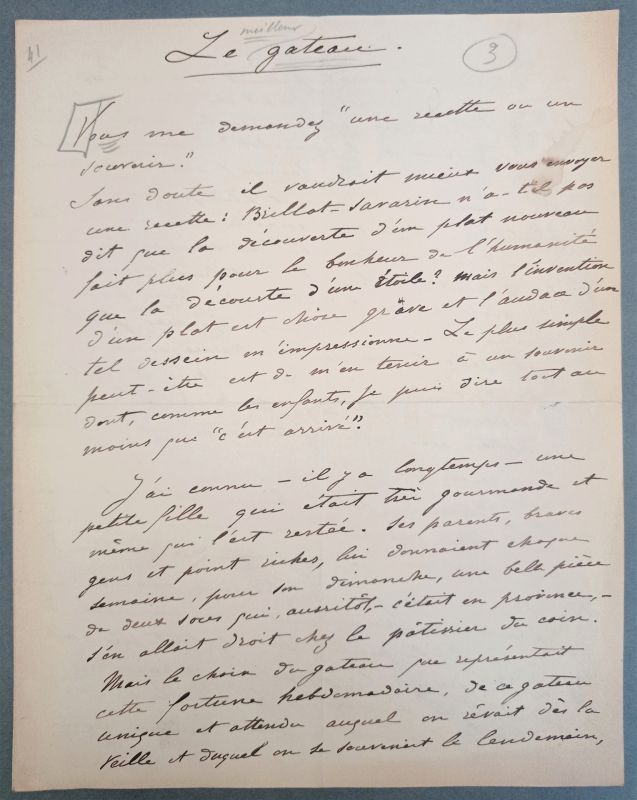 41
meilleur
Le gateau.
3
Vous me demandez "une recette ou un
souvenir."
Sans doute il vaudrait mieux vous envoyer
une recette : Brillat-Savarin n'a-t-il pas
dit que la découverte d'un plat nouveau
fait plus pour le bonheur de l'humanité
que la découverte d'une étoile? mais l'invention
d'un plat est chose grave et l'audace d'un
tel dessein m'impressionne - Le plus simple
peut-être est de m'en tenir à un souvenir
dont, comme les enfants, je puis dire tout au
moins que "c'est arrivé".
J'ai connu - il y a longtemps - une
petite fille qui était très gourmande et
même qui l'est restée. Ses parents, braves
gens et point riches, lui donnaient chaque
semaine, pour son dimanche, une belle pièce
de deux sous qui, aussitôt, - c'était en province, -
s'en allait droit chez le pâtissier du coin.
Mais le choix du gateau que représentait
cette fortune hebdomadaire, de ce gateau
unique et attendu auquel on rêvait dès la
veille et duquel on se souvenait le lendemain,